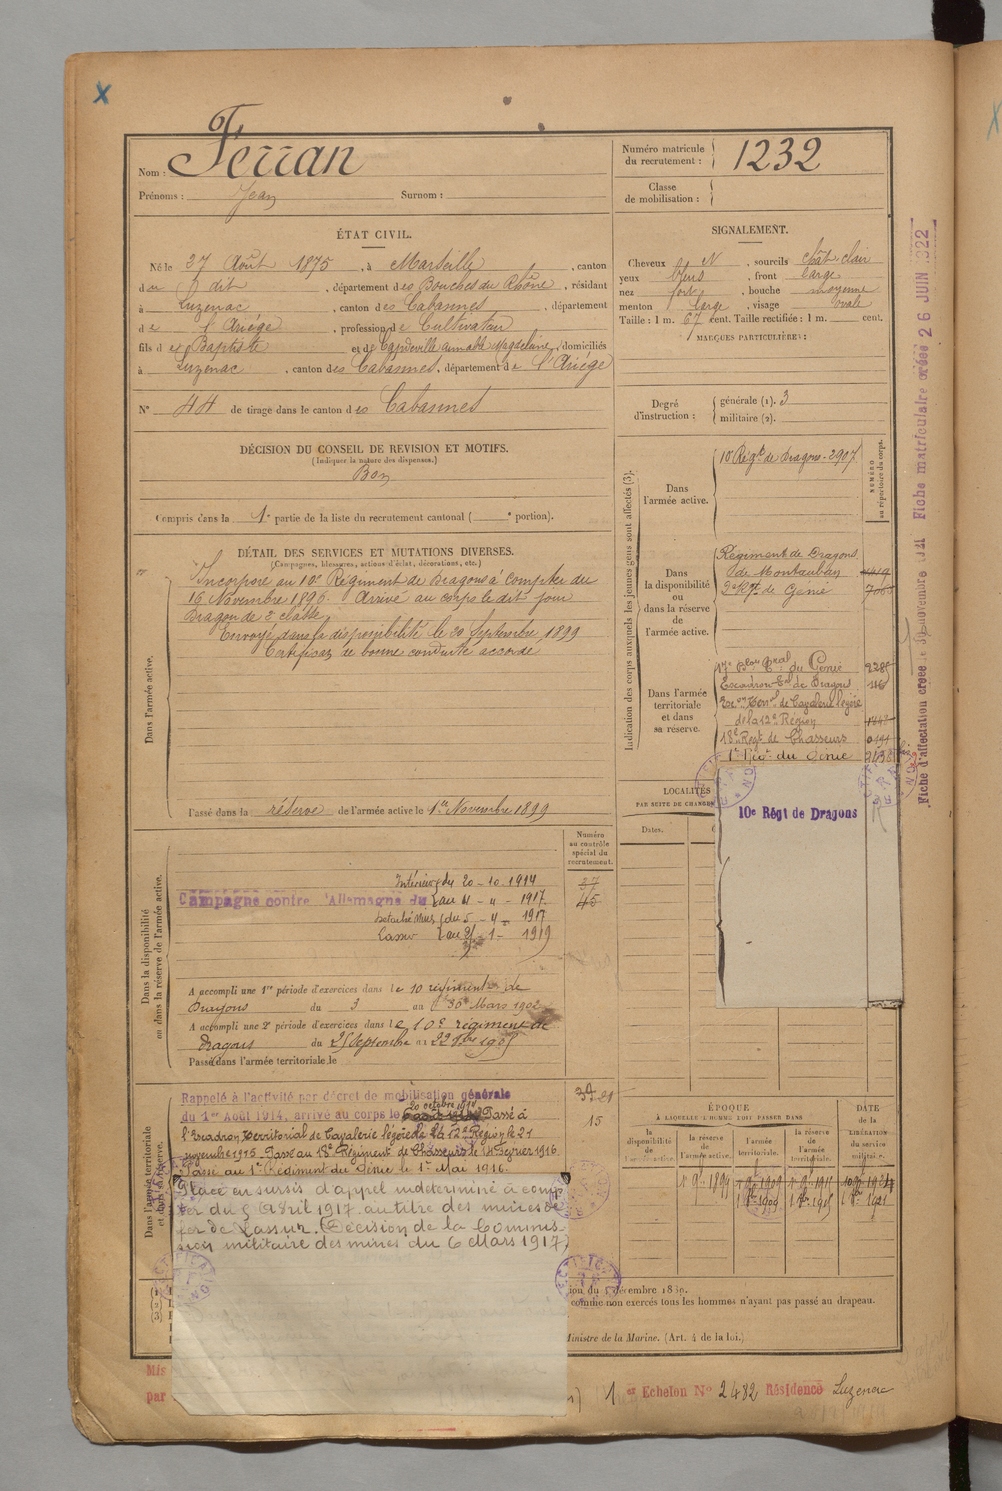 Nom : Ferran
Prénoms : Jean Surnom :
Numéro matricule du recrutement : 1232
Classe de mobilisation :
ÉTAT CIVIL.
Né le 27 Août 1875, à Marseille, canton
du dit, département des Bouches du Rhône, résidant
à Luzenac, canton des Cabannes, département
de l'Ariège, profession de Cultivateur
fils de Baptiste et de Capdeville Magdelaine, domiciliés
à Luzenac, canton des Cabannes, département de l'Ariège
N° 44 de tirage dans le canton des Cabannes
SIGNALEMENT.
Cheveux N, sourcils chât clair
yeux bleus, front large
nez fort, bouche moyenne
menton large, visage ovale
Taille : 1 m. 67 cent. Taille rectifiée : 1 m. cent.
MARQUES PARTICULIÈRES :
Degré d'instruction : générale (1). 3
militaire (2).
DÉCISION DU CONSEIL DE REVISION ET MOTIFS.
(Indiquer la nature des dispenses.)
Bon
Compris dans la 1e partie de la liste du recrutement cantonal ( e portion).
DÉTAIL DES SERVICES ET MUTATIONS DIVERSES.
(Campagnes, blessures, actions d'éclat, décorations, etc.)
Dans l'armée active.
Incorporé au 10e Régiment de Dragons à compter du
16 Novembre 1896. Arrivé au corps le dit jour
Dragon de 2e classe
Envoyé dans la disponibilité le 20 Septembre 1899
Certificat de bonne conduite accordé
Passé dans la réserve de l'armée active le 1er Novembre 1899
Indication des corps auxquels les jeunes gens sont affectés (3).
NUMÉRO au répertoire du corps.
Dans l'armée active.
10e Régt de Dragons - 2907
Dans la disponibilité ou dans la réserve de l'armée active.
Régiment de Dragons
de Montauban
2e Régt de Génie
Dans l'armée territoriale et dans sa réserve.
17e du Génie
Escadron de Dragons
de Cavalerie légère
de la 12e Région
18e Régt de Chasseurs
1er Régt du Génie
LOCALITÉS
PAR SUITE DE CHANGE
Dates.
10e Régt de Dragons
Dans la disponibilité ou dans la réserve de l'armée active.
Numéro au contrôle spécial du recrutement.
37
45
Intérieur du 20 - 10 - 1914
Campagne contre l'Allemagne du au 4 - 4 - 1917
Détaché Mines du 5 - 4 - 1917
Lassur au 1 - 1919
A accompli une 1re période d'exercices dans le 10 régiment de
Dragons du 3 au 30 Mars 1902
A accompli une 2e période d'exercices dans le 10e régiment de
Dragons du 25 Septembre au 22 8bre 1905
Passé dans l'armée territoriale le
Dans l'armée territoriale et dans sa réserve.
Rappelé à l'activité par décret de mobilisation générale
du 1er Août 1914, arrivé au corps le 20 octobre 1914 Passé à
l'Escadron territorial de Cavalerie légère de la 12e Région le 21
novembre 1915. Passé au 18e Régiment de Chasseurs le 14 Février 1916.
Passé au 1er Régiment du Génie le 1er Mai 1916.
Placé en sursis d'appel indéterminé à comp-
ter du 5 Avril 1917 au titre des mines de
fer de Lassur. (Décision de la Commis-
sion militaire des mines du 6 Mars 1917)
15
ÉPOQUE
À LAQUELLE L'HOMME DOIT PASSER DANS
la disponibilité de l'armée active.
la réserve de l'armée active.
l'armée territoriale.
la réserve de l'armée territoriale.
DATE de la LIBÉRATION du service militaire.
comme non exercés tous les hommes n'ayant pas passé au drapeau.
Ministre de la Marine. (Art. 4 de la loi.)
Mis
par
1er Echelon N° 2482 Résidence Luzenac
Fiche d'affectation créée le novembre Fiche matriculaire créée 26 JUIN 1922